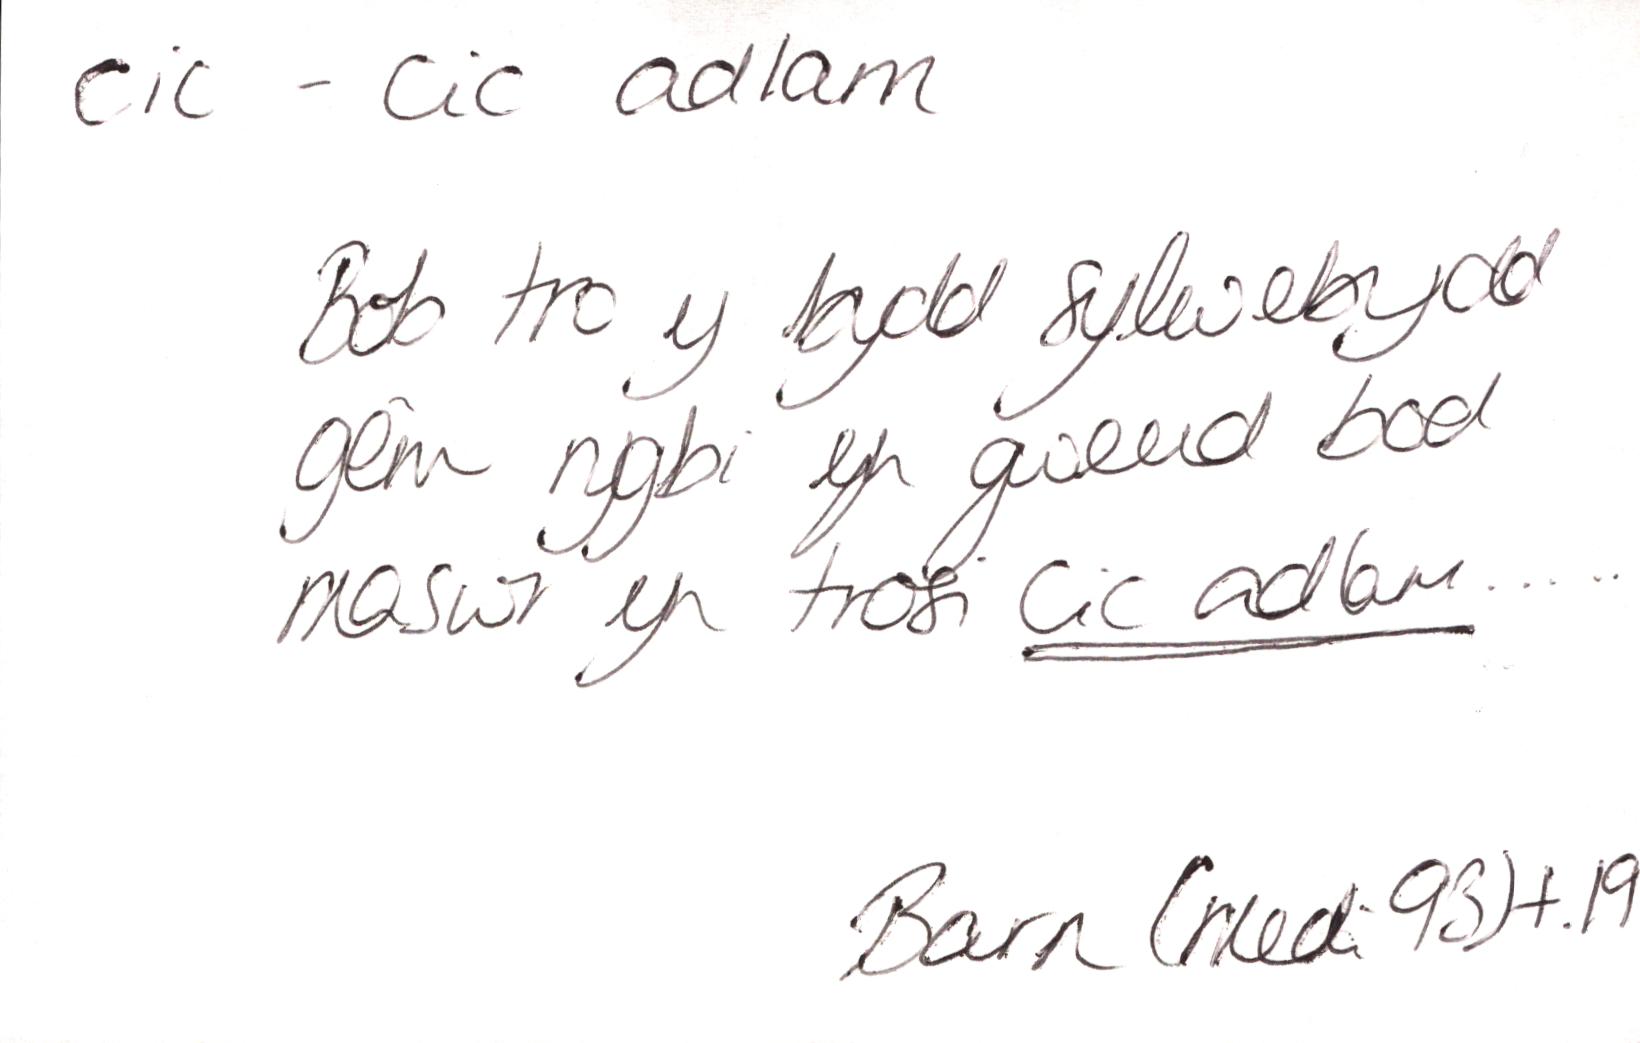 cic - cic adlam
Bob tro y bydd sylwebydd
gêm rygbi yn gweud bod
maswr yn trosi cic adlam......
Barn (Medi 93) t.19